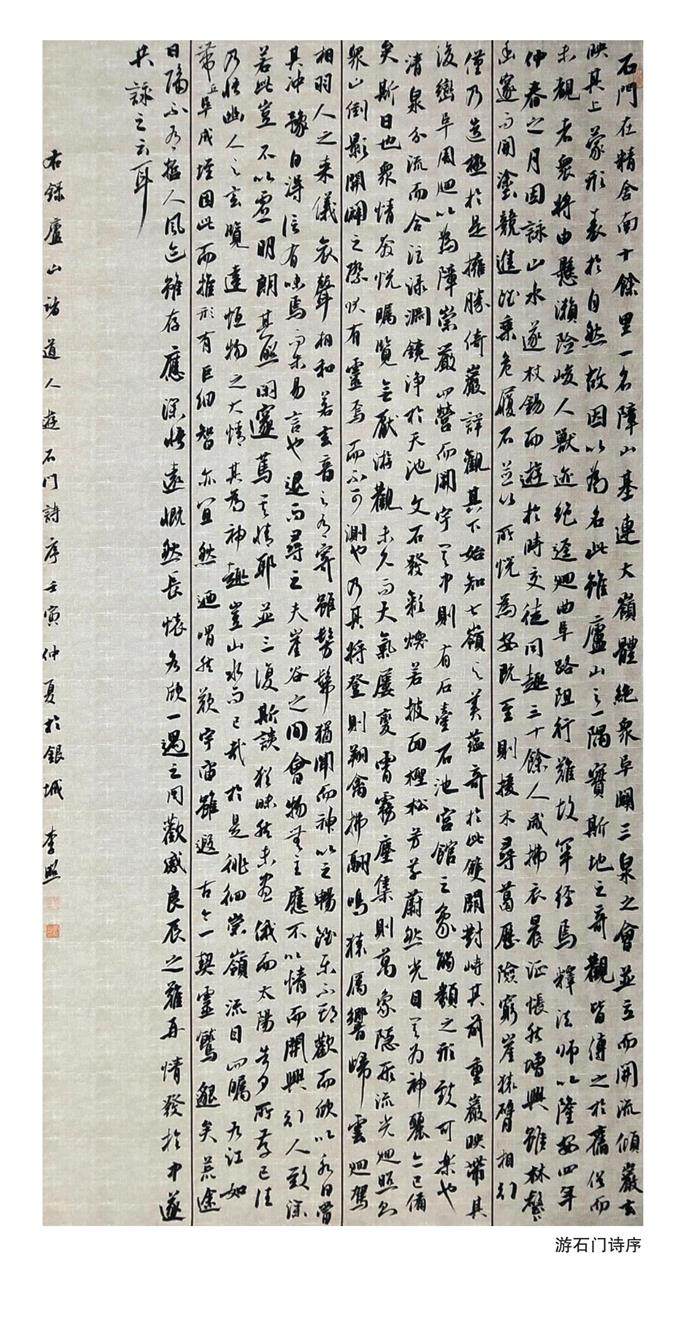 石門在精舍南十餘里一名障山基連大嶺體絕眾阜闢三泉之會並立而開流傾巖玄
映其上蒙形表於自然故因以為名此雖廬山之一隅實斯地之奇觀皆傳之於舊俗而
未覩者眾將由懸瀨險峻人獸迹絕逕迴曲阜路阻行難故罕經焉釋法師以隆安四年
仲春之月因詠山水遂杖錫而遊於時交徒同趣三十餘人咸拂衣晨征悵然增興雖林壑
幽邃而開塗競進雖乘危履石並以所悅為安既至則援木尋葛歷險窮崖猿臂相引
僅乃造極於是擁勝倚巖詳觀其下始知七嶺之美蘊奇於此雙闕對峙其前重巖映帶其
後巒阜周迴以為障崇巖四營而開宇其中則有石臺石池宮館之象觸類之形致可樂也
清泉分流而合注淥淵鏡淨於天池文石發彩煥若披面檉松芳草蔚然光目其為神麗亦已備
矣斯日也眾情奔悅矚覽無厭游觀未久而天氣屢變霄霧塵集則萬象隱形流光迴照則
眾山倒影開闔之際狀有靈焉而不可測也乃其將登則翔禽拂翮鳴猿厲響歸雲迴駕
想羽人之來儀哀聲相和若玄音之有寄雖髣髴猶聞而神以之暢雖樂不期歡而欣以永日當
其沖豫自得信有味焉而未易言也退而尋之夫崖谷之間會物無主應不以情而開興引人致深
若此豈不以虛明朗其照閒邃篤其情耶並三復斯談猶昧然未盡俄而太陽告夕所存已往
乃悟幽人之玄覽達恆物之大情其為神趣豈山水而已哉於是徘徊崇嶺流目四矚九江如
帶丘阜成垤因此而推形有巨細智亦宜然迺喟然歎宇宙雖遐古今一契靈鷲邈矣荒途
日隔不有哲人風迹雖存應深悟遠慨然長懷各欣一遇之同歡感良辰之難再情發於中遂
共詠之云耳
右錄廬山諸道人遊石門詩序壬寅仲夏於銀城 李照
游石门诗序